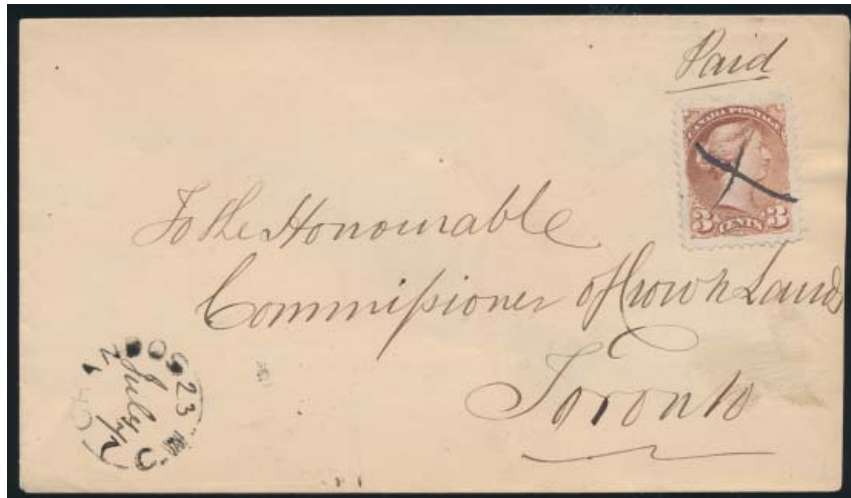 Paid
CANADA POSTAGE
3 CENTS 3
To the Honourable
Commissioner of Crown Lands
Toronto
July 23